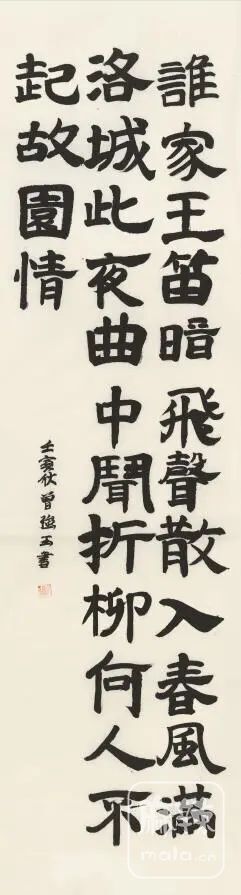 誰家王笛暗飛聲散入春風滿
洛城此夜曲中聞折柳何人不
起故園情
壬寅秋曾玉書
mala.cn